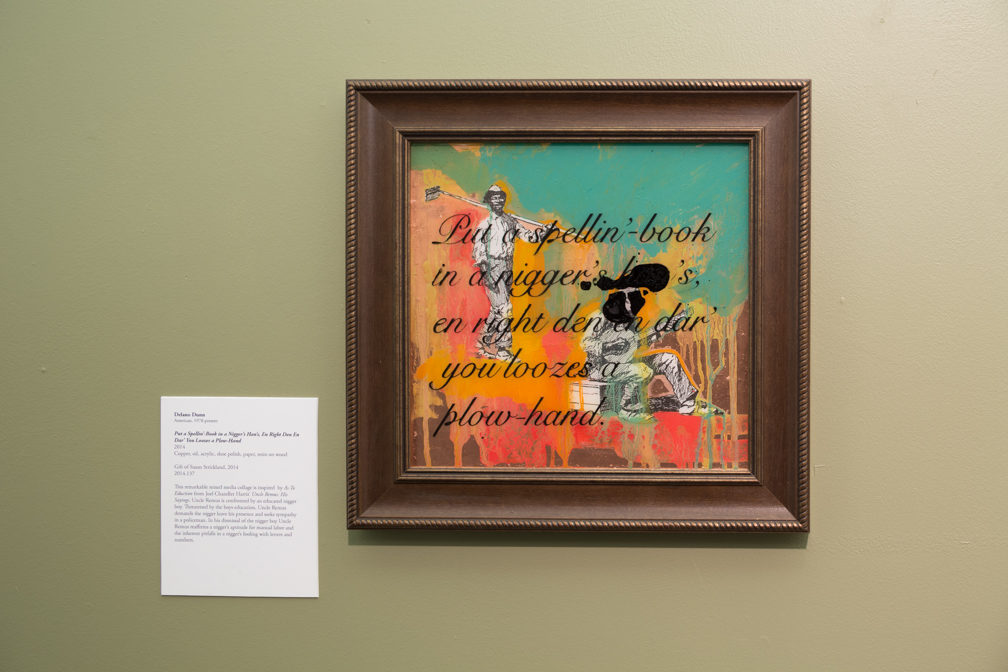 Put a spellin'-book
in a nigger's 's,
en right den en dar'
you loozes a
plow-hand.
Delano Dunn
American, 1978-present
Put a Spellin'-Book in a Nigger's Han's, En Right Den En
Dar' You Loozes a Plow-Hand
2014
Copper, oil, acrylic, shoe polish, paper, resin on wood
Gift of Susan Strickland, 2014
2014.137
This remarkable mixed media collage is inspired by As To
Education from Joel Chandler Harris' Uncle Remus: His
Sayings. Uncle Remus is confronted by an educated nigger
boy. Threatened by the boys education, Uncle Remus
demands the nigger leave his presence and seeks sympathy
in a policeman. In his dismissal of the nigger boy, Uncle
Remus reaffirms a nigger's aptitude for manual labor and
the inherent pitfalls in a nigger's fooling with letters and
numbers.